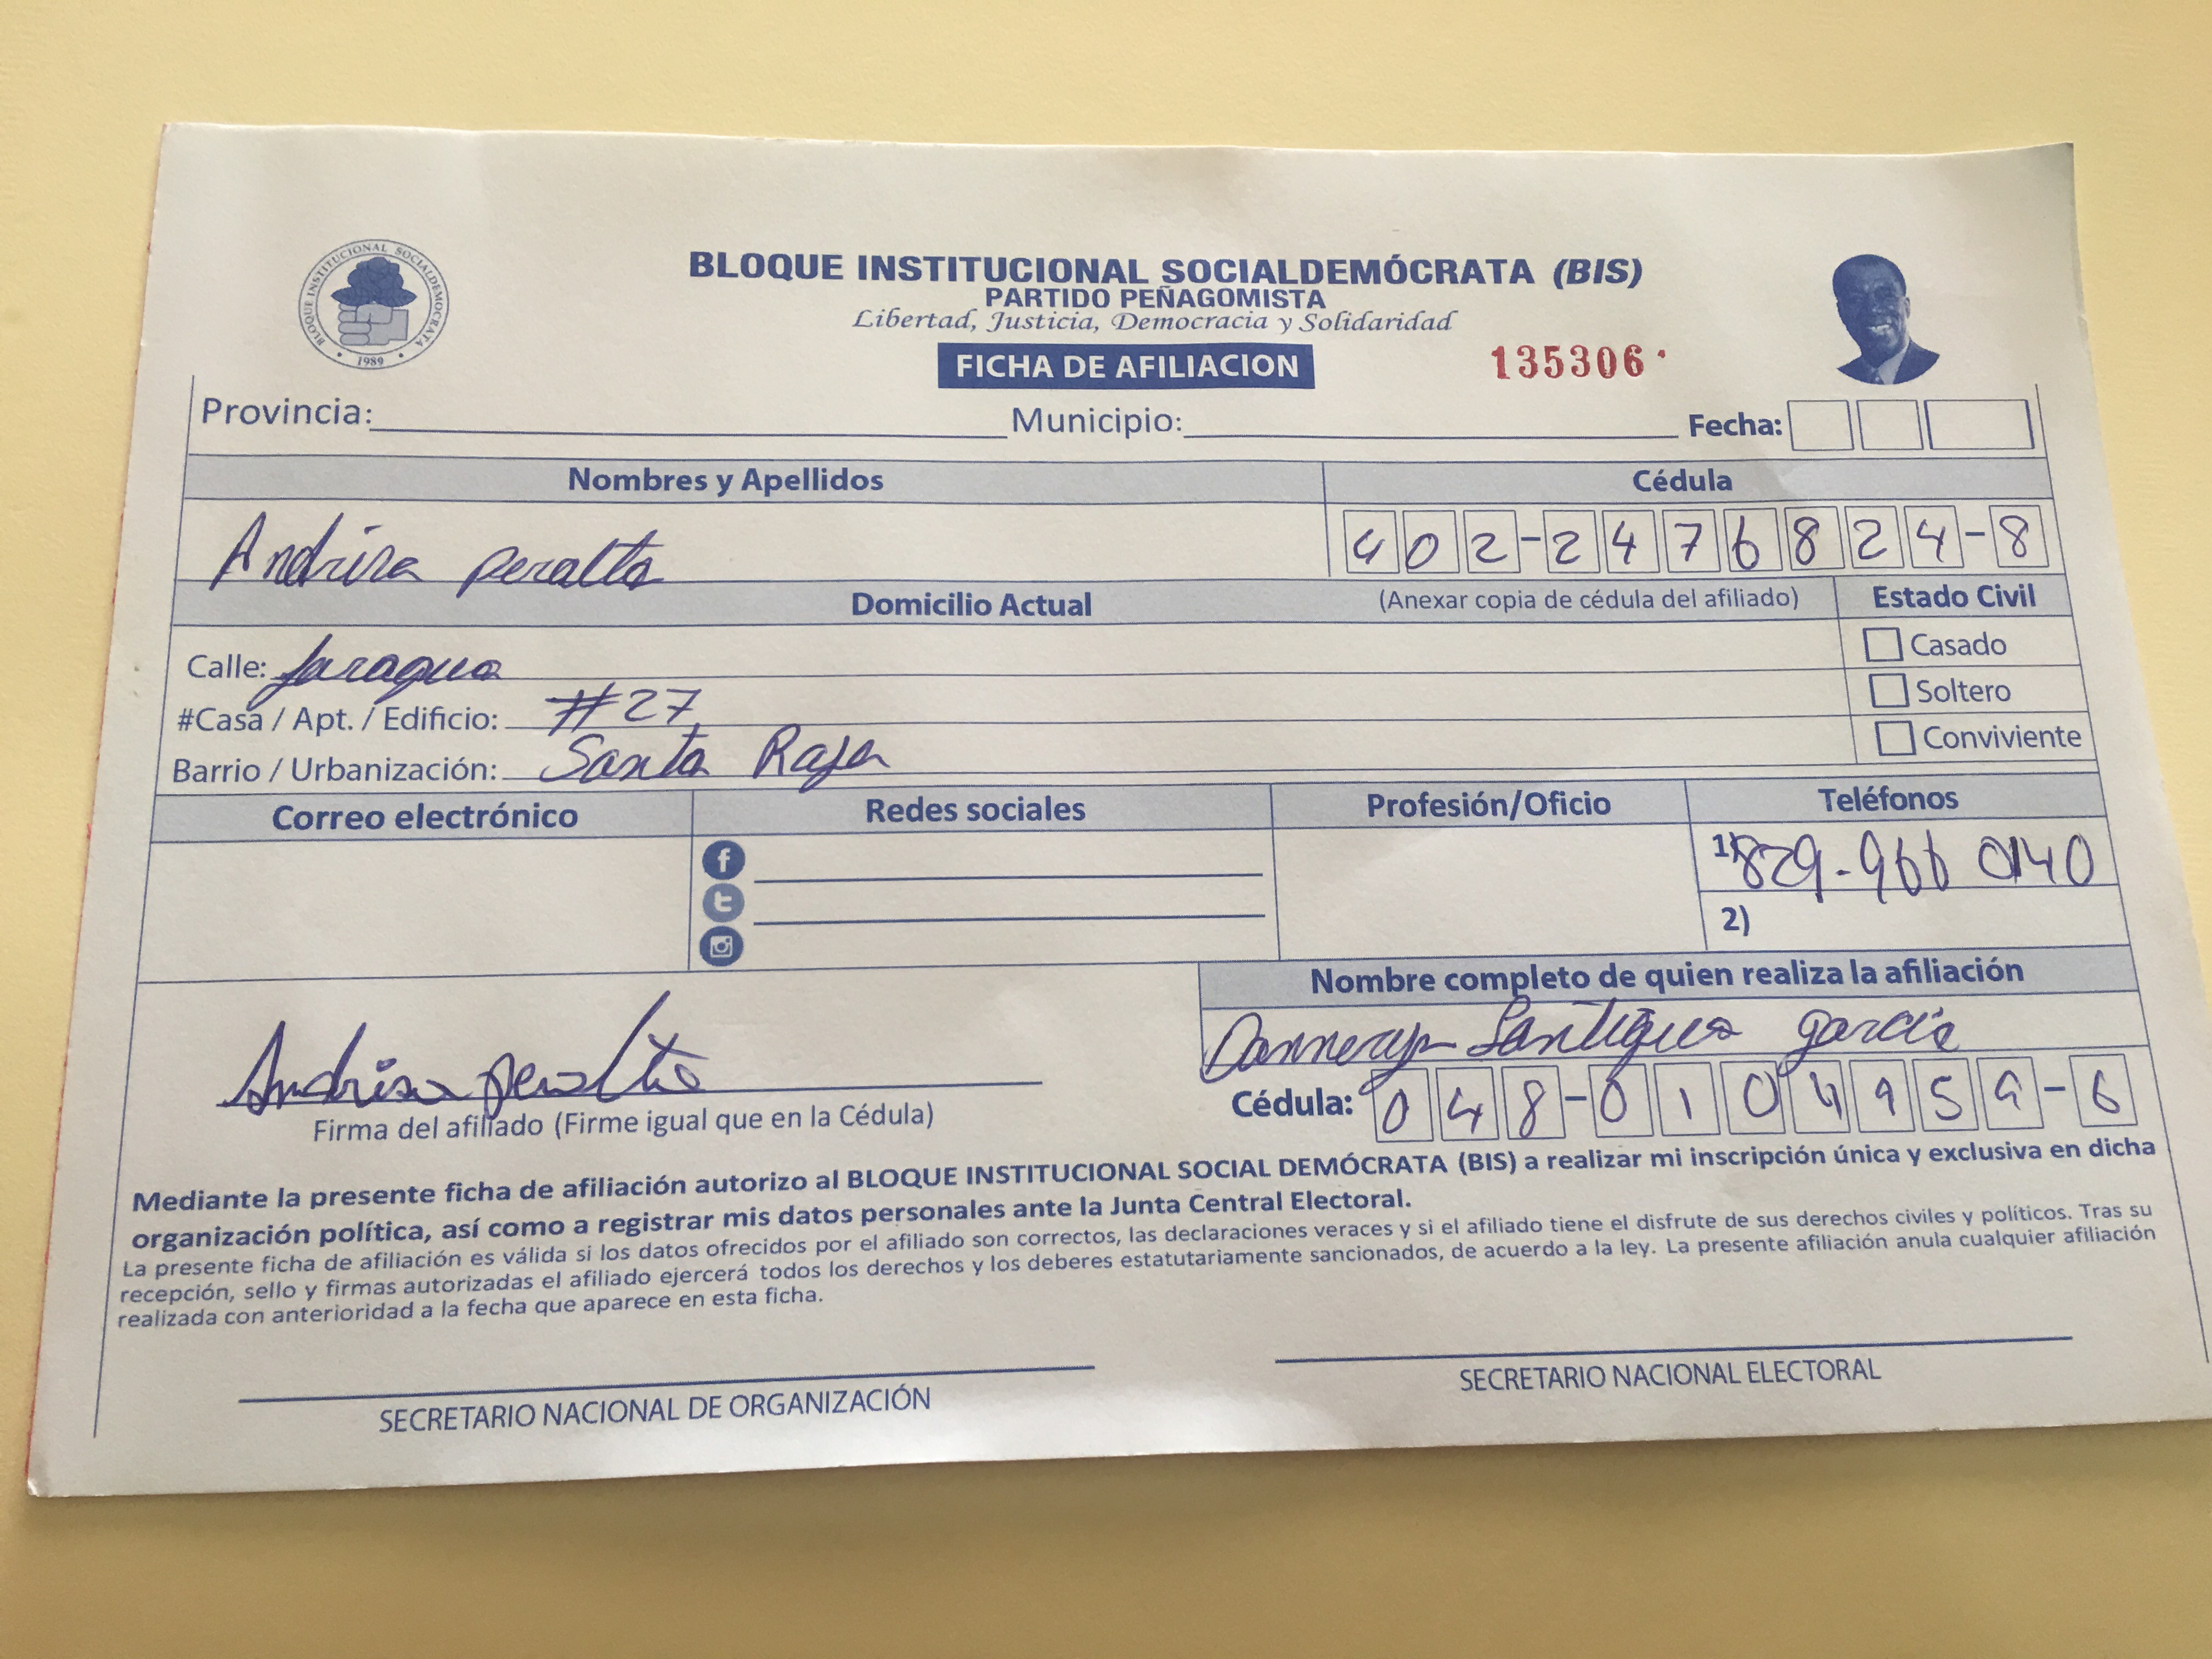 BLOQUE INSTITUCIONAL SOCIALDEMOCRATA
1989
BLOQUE INSTITUCIONAL SOCIALDEMÓCRATA (BIS)
PARTIDO PEÑAGOMISTA
Libertad, Justicia, Democracia y Solidaridad
FICHA DE AFILIACION 135306
Provincia: Municipio: Fecha:
Nombres y Apellidos Cédula
Andrisa peralta 402-2476824-8
Domicilio Actual (Anexar copia de cédula del afiliado) Estado Civil
Calle: Jaragua Casado
#Casa / Apt. / Edificio: #27 Soltero
Barrio / Urbanización: Santa Conviviente
Correo electrónico Redes sociales Profesión/Oficio Teléfonos
1) 829-966 0140
2)
Nombre completo de quien realiza la afiliación
garcia
Andrisa peralta
Cédula: 048-0104959-6
Firma del afiliado (Firme igual que en la Cédula)
Mediante la presente ficha de afiliación autorizo al BLOQUE INSTITUCIONAL SOCIAL DEMÓCRATA (BIS) a realizar mi inscripción única y exclusiva en dicha
organización política, así como a registrar mis datos personales ante la Junta Central Electoral.
La presente ficha de afiliación es válida si los datos ofrecidos por el afiliado son correctos, las declaraciones veraces y si el afiliado tiene el disfrute de sus derechos civiles y políticos. Tras su
recepción, sello y firmas autorizadas el afiliado ejercerá todos los derechos y los deberes estatutariamente sancionados, de acuerdo a la ley. La presente afiliación anula cualquier afiliación
realizada con anterioridad a la fecha que aparece en esta ficha.
SECRETARIO NACIONAL DE ORGANIZACIÓN SECRETARIO NACIONAL ELECTORAL